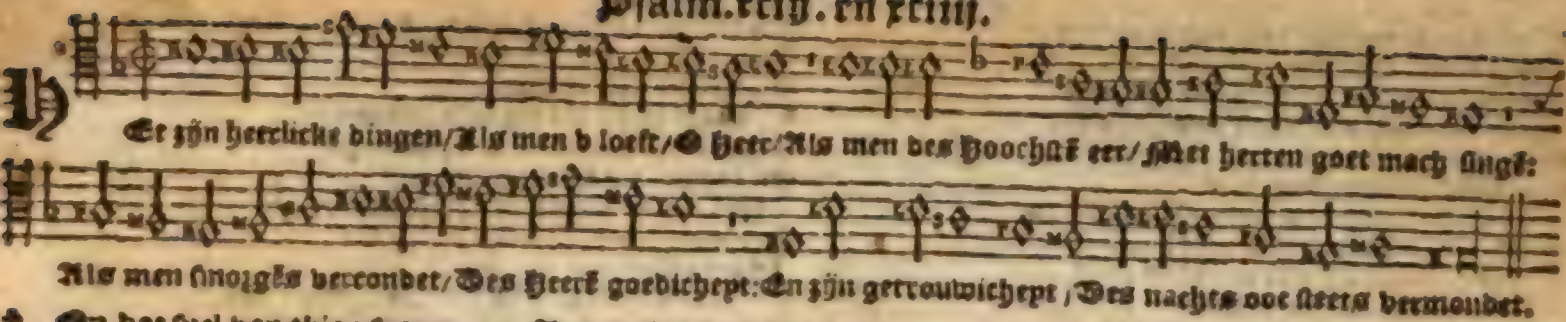 Psalm.xciij. en xciiij.
H
Et zijn heerlicke dingen/Als men v looft/O Heer/Als men des Hoochstē eer/Met herten goet mach singē:
Als men smorgēs vercondet/Des Heerē goedicheyt:En zijn getrouwicheyt/Des nachts ooc steets vermondet.